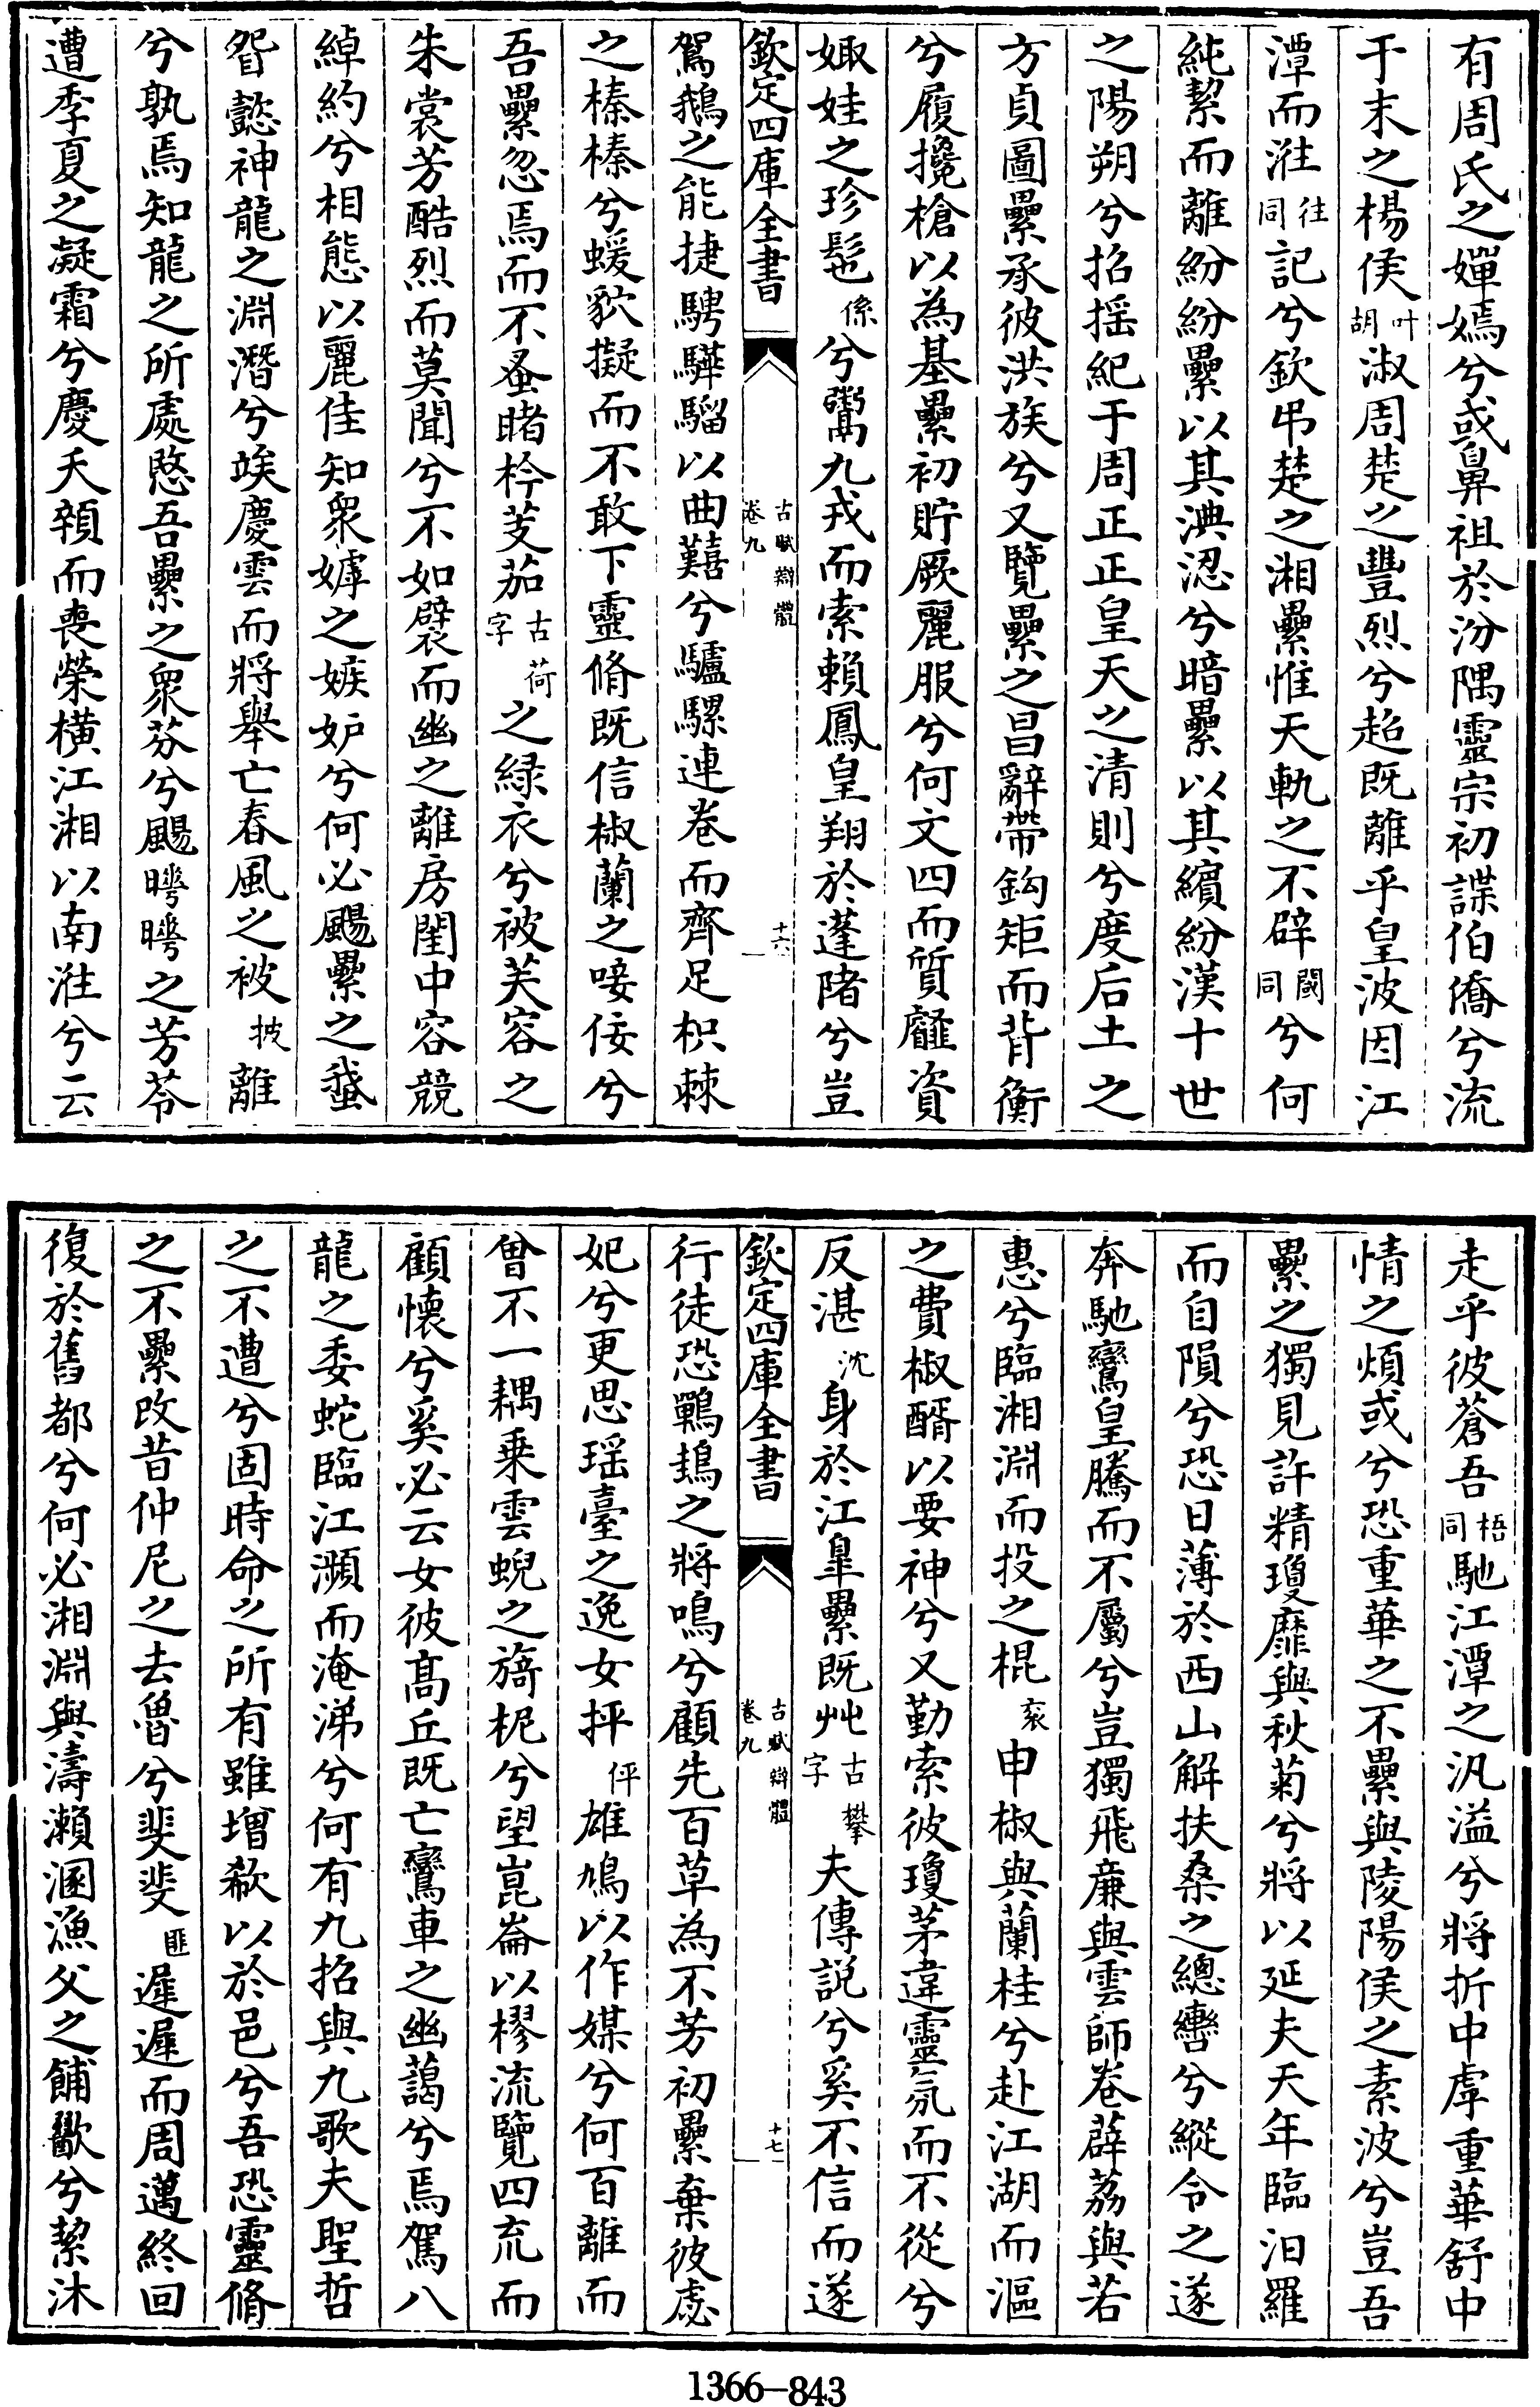 有周氏之嬋嫣兮或鼻祖於汾隅靈宗初諜伯僑兮流
于末之楊侯叶胡淑周楚之豐烈兮超既離乎皇波因江
潭而㳌往同記兮欽弔楚之湘纍惟天軌之不辟闢同兮何
純絜而離紛紛纍以其淟涊兮暗纍以其繽紛漢十世
之陽朔兮招揺紀于周正正皇天之清則兮度后土之
方貞圖纍承彼洪族兮又覽纍之昌辭帶鈎矩而背衡
兮履攙槍以為綦纍初貯厥麗服兮何文四而質䪥資
娵娃之珍髢係兮鬻九戎而索賴鳳皇翔於蓬陼兮豈
欽定四庫全書 古賦辯體 卷九 十六
駕鵝之能捷騁驊騮以曲囏兮驢騾連卷而齊足枳棘
之榛榛兮蝯貁擬而不敢下靈脩既信椒蘭之唼佞兮
吾纍忽焉而不蚤睹衿芰茄古荷字之緑衣兮被芙容之
朱裳芳酷烈而莫聞兮不如襞而幽之離房閨中容競
綽約兮相態以麗佳知衆嫭之嫉妒兮何必颺纍之蛾
眉懿神龍之淵潛兮竢慶雲而將舉亡春風之被披離
兮孰焉知龍之所處愍吾纍之衆芬兮颺𤏻𤏻之芳苓
遭季夏之凝霜兮慶夭顇而喪榮横江湘以南㳌兮云
走乎彼蒼吾梧同馳江潭之汎溢兮將折中虖重華舒中
情之煩或兮恐重華之不纍與陵陽侯之素波兮豈吾
纍之獨見許精瓊靡與秋菊兮將以延夫天年臨汨羅
而自隕兮恐日薄於西山解扶桑之總轡兮縱令之遂
奔馳鸞皇騰而不屬兮豈獨飛廉與雲師卷薜荔與若
惠兮臨湘淵而投之棍衮申椒與蘭桂兮赴江湖而漚
之費椒醑以要神兮又勤索彼瓊茅違靈氛而不從兮
反湛沈身於江臯纍既𠬜古攀字夫傅説兮奚不信而遂
欽定四庫全書 古賦辯體 卷九 十七
行徒恐鷤䳏之將鳴兮顧先百草為不芳初纍棄彼虙
妃兮更思瑶臺之逸女抨伻雄鳩以作媒兮何百離而
曾不一耦乗雲蜺之旖柅兮望崑崙以樛流覽四荒而
顧懷兮奚必云女彼髙丘既亡鸞車之幽藹兮焉駕八
龍之委蛇臨江瀕而淹涕兮何有九招與九歌夫聖哲
之不遭兮固時命之所有雖增欷以於邑兮吾恐靈脩
之不纍改昔仲尼之去魯兮斐斐匪遲遲而周邁終回
復於舊都兮何必湘淵與濤瀨溷漁父之餔歠兮絜沐
1366—843